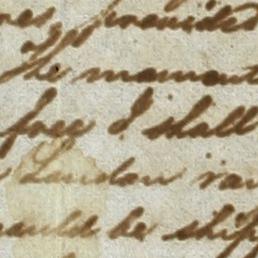 provided
the moment
free I shall
London
would be ship